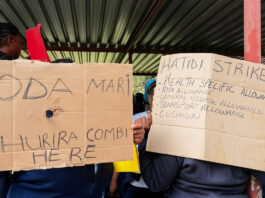 ODA MARI
HURIRA COMBI
HERE
HATIDI STRIKE
- HEALTH SPECIFIC ALLOWA
- RISK ALLOWANCE
- GENERAL HOSPITAL ALLOWANCE
- TRANSPORT ALLOWANCE
- CUSHION